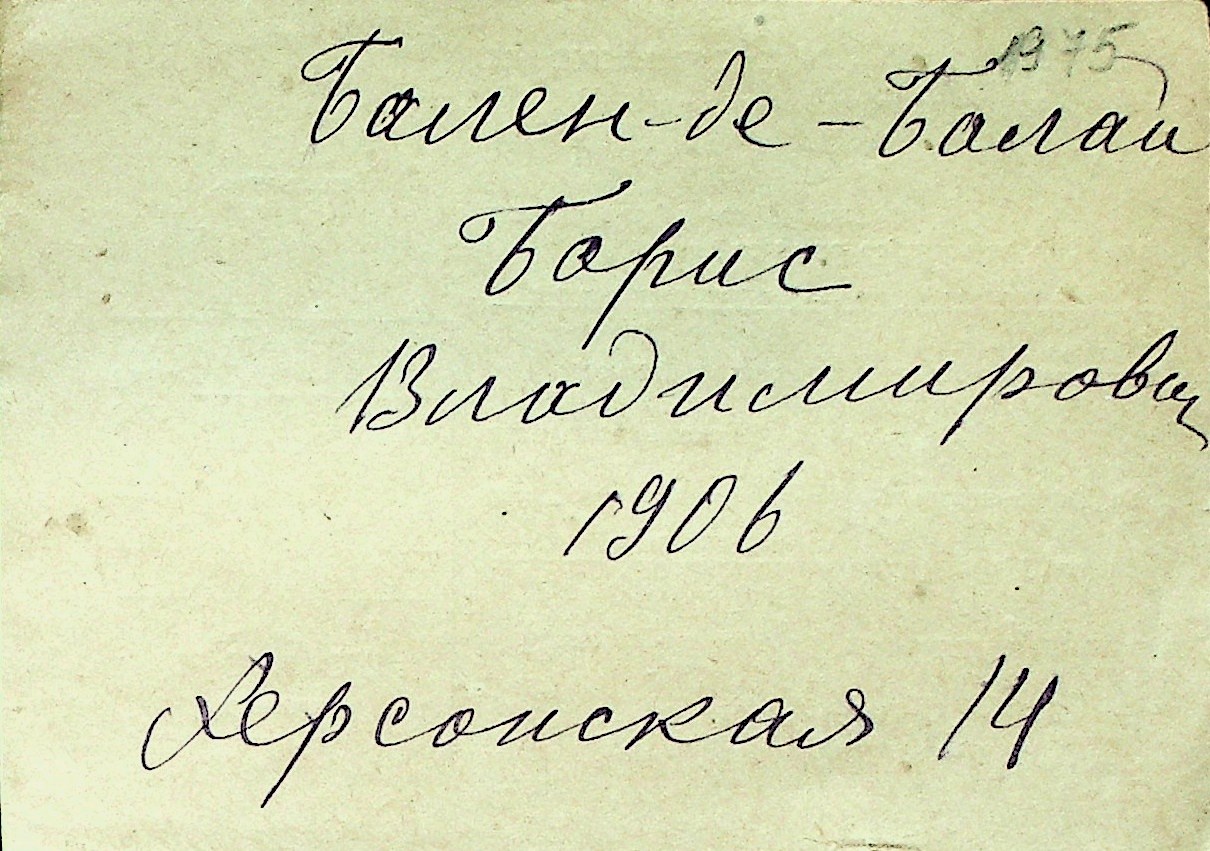 1975
Бален-де-Балай
Борис
Владимирович
1906
Херсонская 14